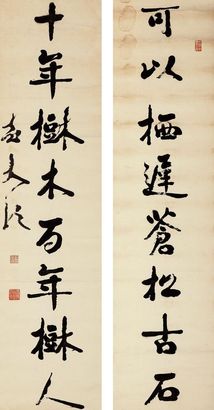 可以栖遲蒼松古石
十年樹木百年樹人